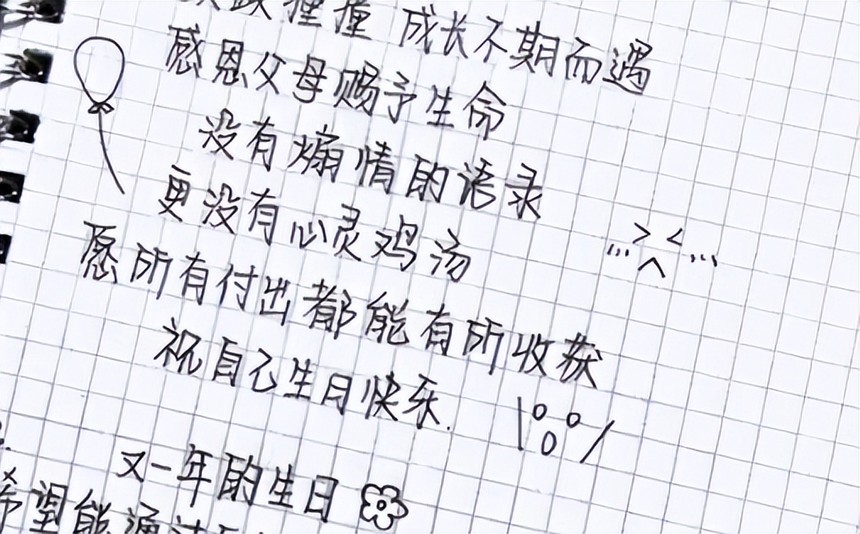 撞撞 成长不期而遇
感恩父母赐予生命
没有煽情的语录
更没有心灵鸡汤
愿所有付出都能有所收获
祝自己生日快乐.
又一年的生日
希望能通过